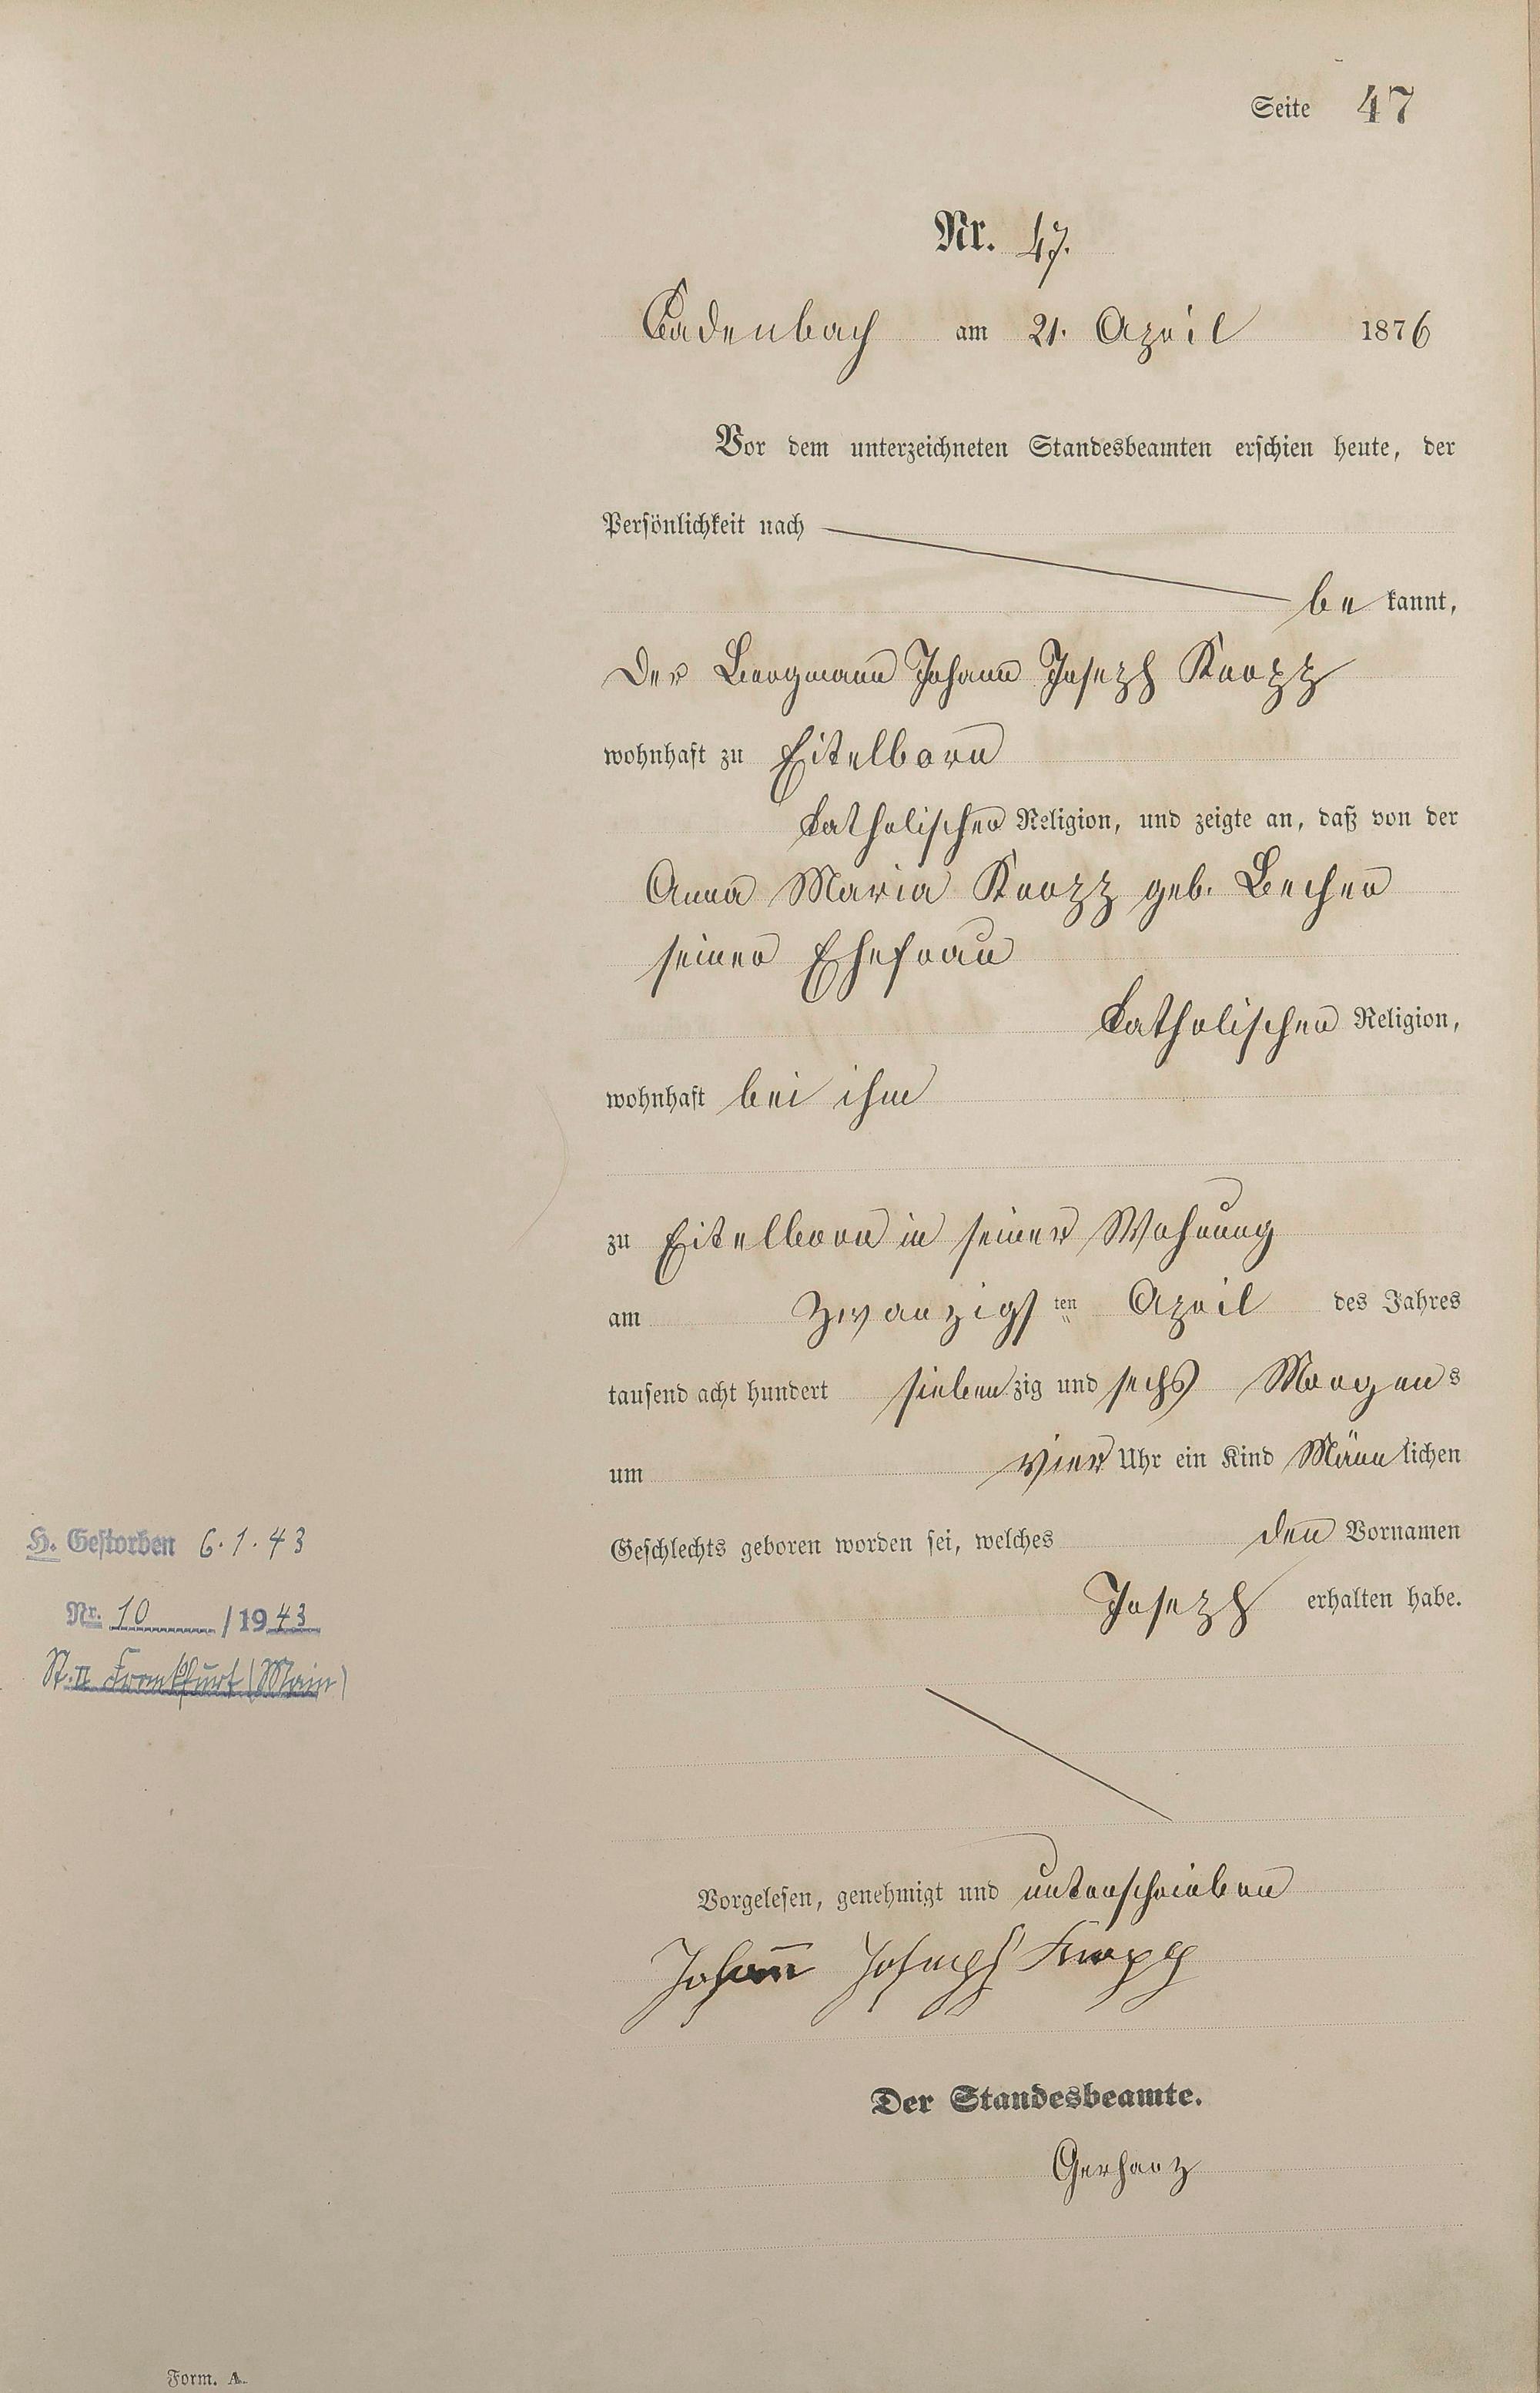 Seite 47
Nr. 47.
Cadenbach am 21. April 1876
Vor dem unterzeichneten Standesbeamten erschien heute, der
Persönlichkeit nach
be kannt,
der Bergmann Johann Joseph Knopp
wohnhaft zu Eitelborn
katholischer Religion, und zeigte an, daß von der
Anna Maria Knopp geb. Becher
seiner Ehefrau
katholischer Religion,
wohnhaft bei ihm
zu Eitelborn in seiner Wohnung
am zwanzigsten April des Jahres
tausend acht hundert siebenzig und sechs Morgens
um vier Uhr ein Kind Männlichen
Geschlechts geboren worden sei, welches den Vornamen
Joseph erhalten habe.
H. Gestorben 6.1.43
Nr. 10 /1943
St. II Frankfurt (Main)
Vorgelesen, genehmigt und unterschrieben
Johann Joseph Knopp
Der Standesbeamte.
Gerharz
Form. A.